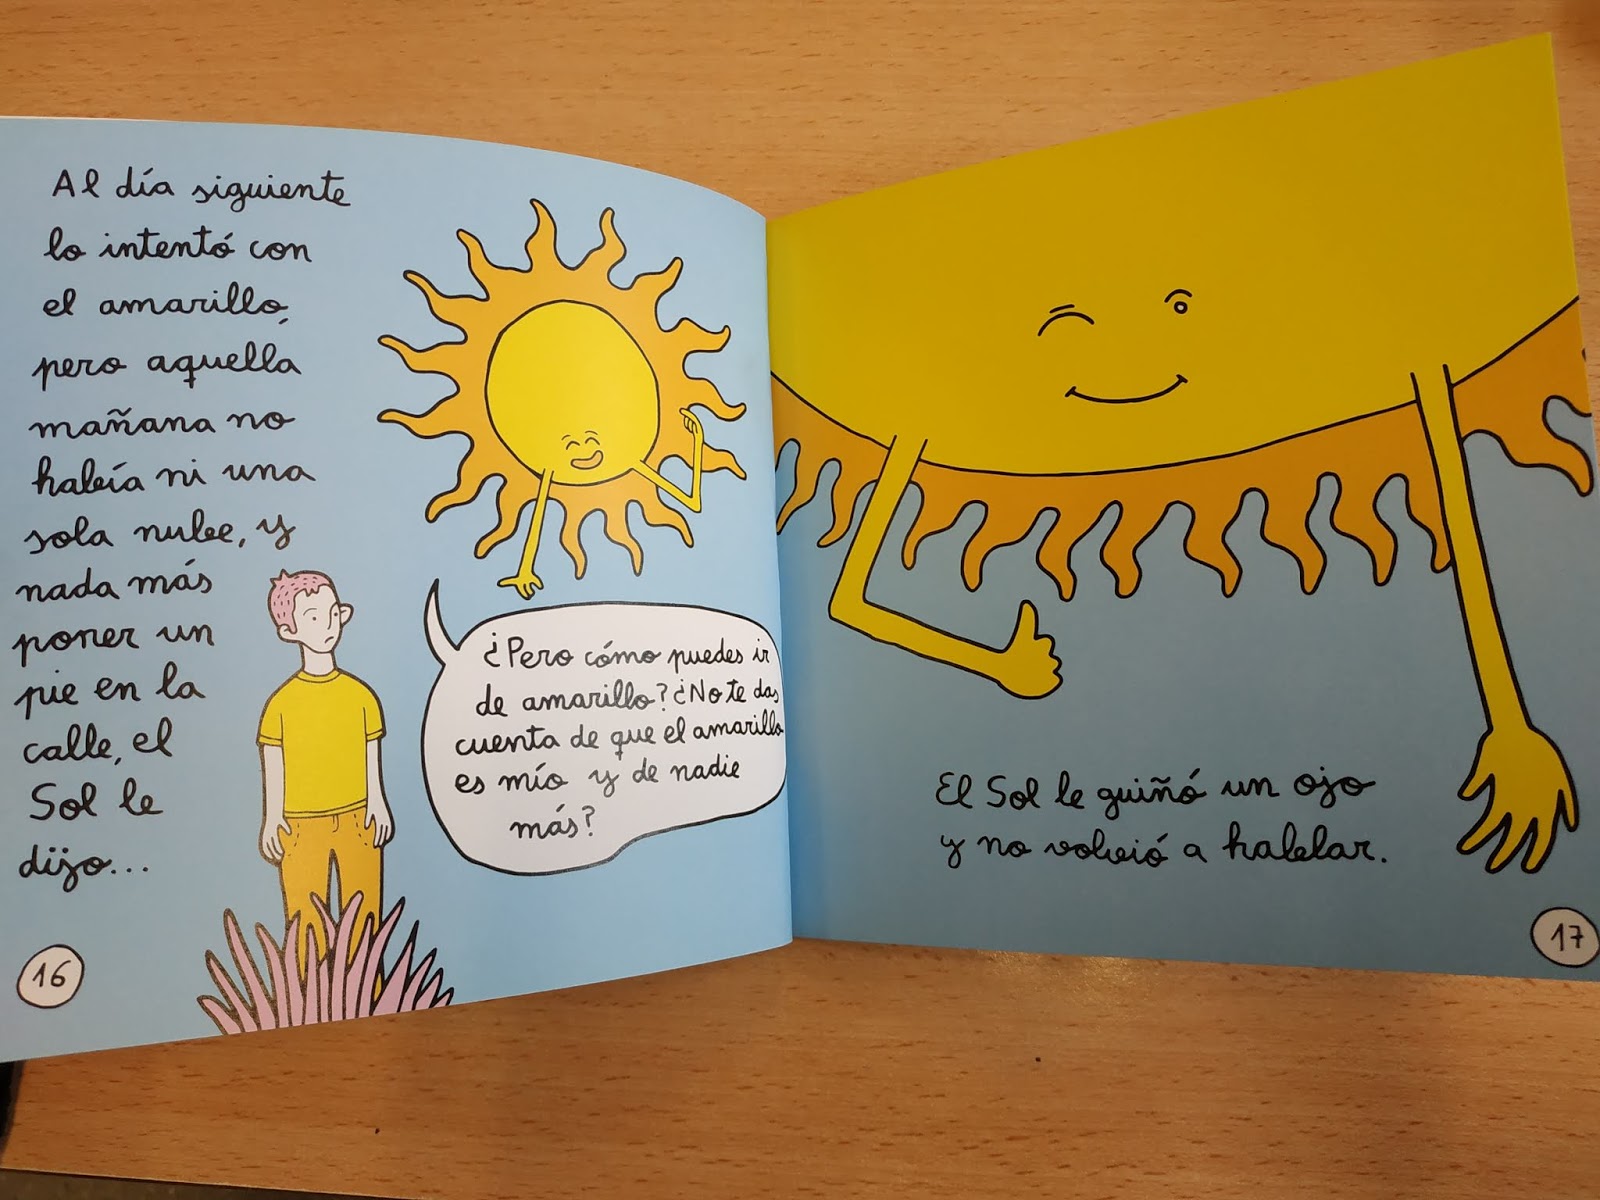 Al día siguiente
lo intentó con
el amarillo,
pero aquella
mañana no
había ni una
sola nube, y
nada más
poner un
pie en la
calle, el
Sol le
dijo...
¿Pero cómo puedes ir
de amarillo? ¿No te das
cuenta de que el amarillo
es mío y de nadie
más?
16
El Sol le guiñó un ojo
y no volvió a hablar.
17